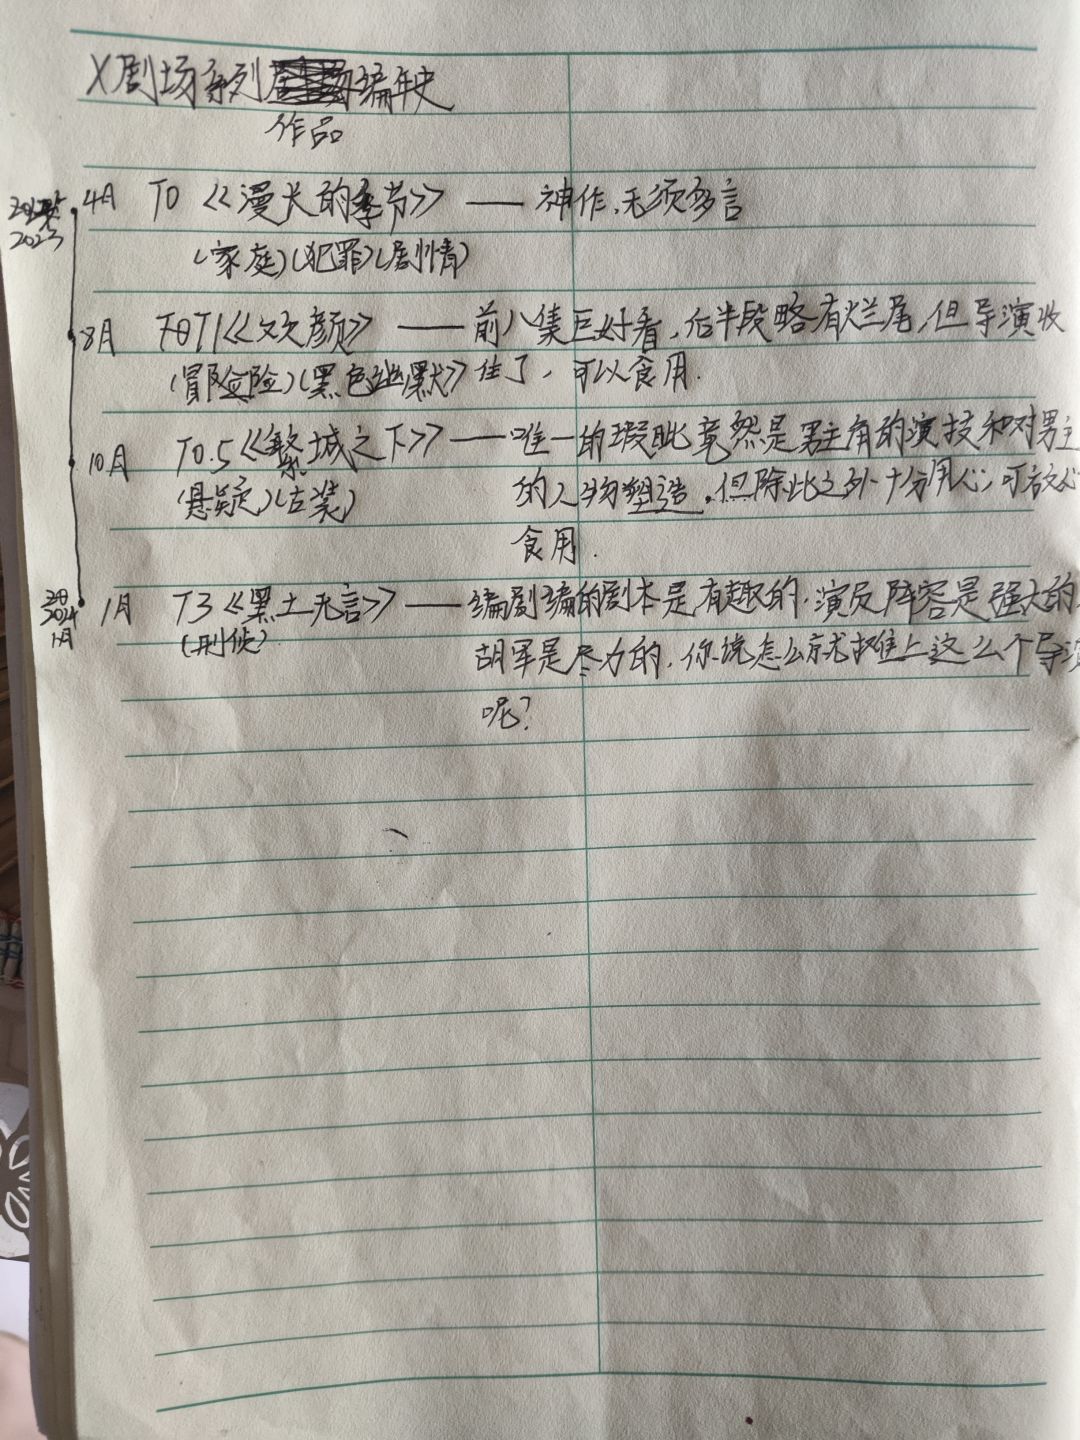 X剧场系列编年史
作品
2023
4月 T0 《漫长的季节》——神作，无须多言
(家庭)(犯罪)(剧情)
8月 T1《欢颜》——前八集巨好看，后半段略有烂尾，但导演收
(冒险)(黑色幽默)住了，可以食用.
10月 T0.5《繁城之下》——唯一的瑕疵竟然是男主角的演技和对男主
(悬疑)(古装) 的人物塑造.但除此之外十分用心;可放心
食用.
2024
1月
1月 T3《黑土无言》——编剧编的剧本是有趣的.演员阵容是强大的
(刑侦) 胡军是尽力的.你说怎么就摊上这么个导演
呢?